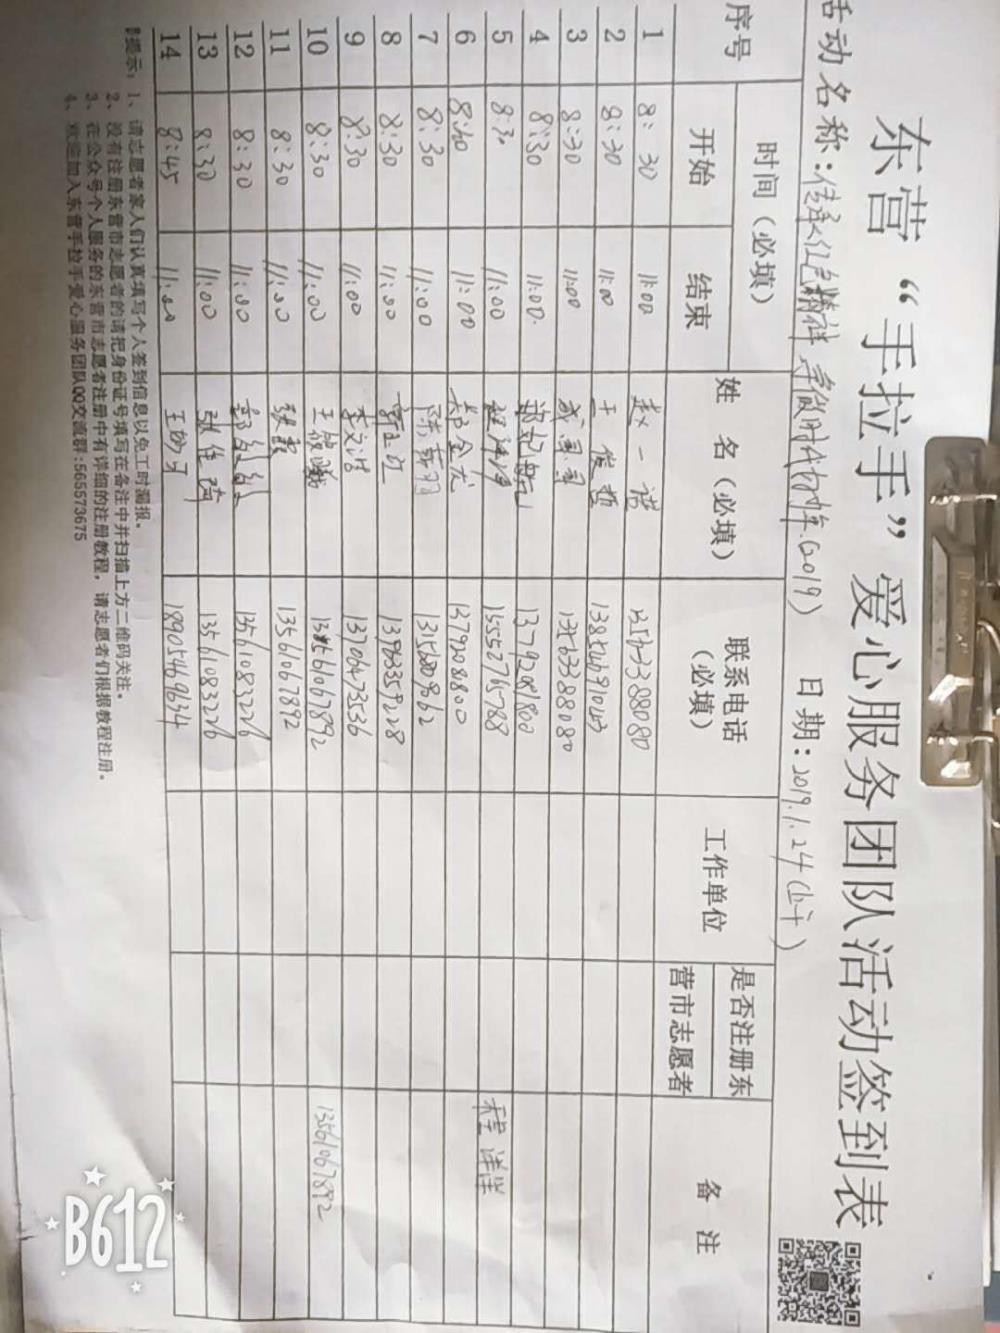 东营“手拉手”爱心服务团队活动签到表
活动名称：传承红色精神 争做时代切峰(2019) 日期：2019.1.24(上午)
序号 时间（必填） 姓 名（必填） 联系电话（必填） 工作单位 是否注册东营市志愿者 备 注
开始 结束
1 8:30 11:00 赵一诺 33388080
2 8:30 11:00 13854691043
3 8:30 11:00 13563388080
4 8:30 11:00. 13792081800
5 8:30 11:00 程洋洋 15552765788 程洋洋
6 8:40 11:00 13792088800
7 8:30 11:00 陈薪羽 13156809862
8 8:30 11:00 13963359228
9 8:30 11:00 李文浩 13706473536
10 8:30 11:00 王筱曦 13561067892 13561067892
11 8:30 11:00 13561067892
12 8:30 11:00 13561083226
13 8:30 11:00 张佳琦 13561083226
14 8:45 11:00 18905469634
提示：1、请志愿者家人们认真填写个人签到信息以免工时漏报。
2、没有注册东营市志愿者的请把身份证号填写在备注中并扫描上方二维码关注。
3、在公众号个人服务的东营市志愿者注册中有详细的注册教程，请志愿者们根据教程注册。
4、欢迎加入东营手拉手爱心服务团队QQ交流群：565573675
B612